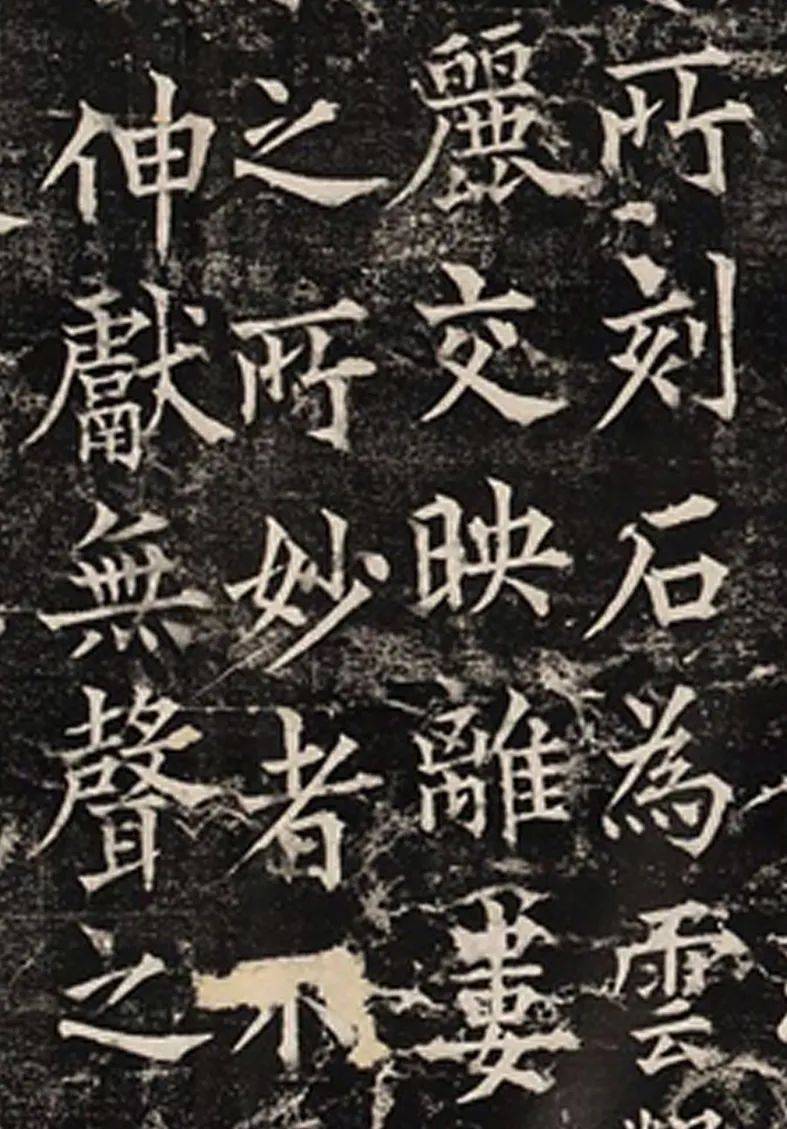 所刻石為雲
麗交映離婁
之所妙者不
伸獻無聲之